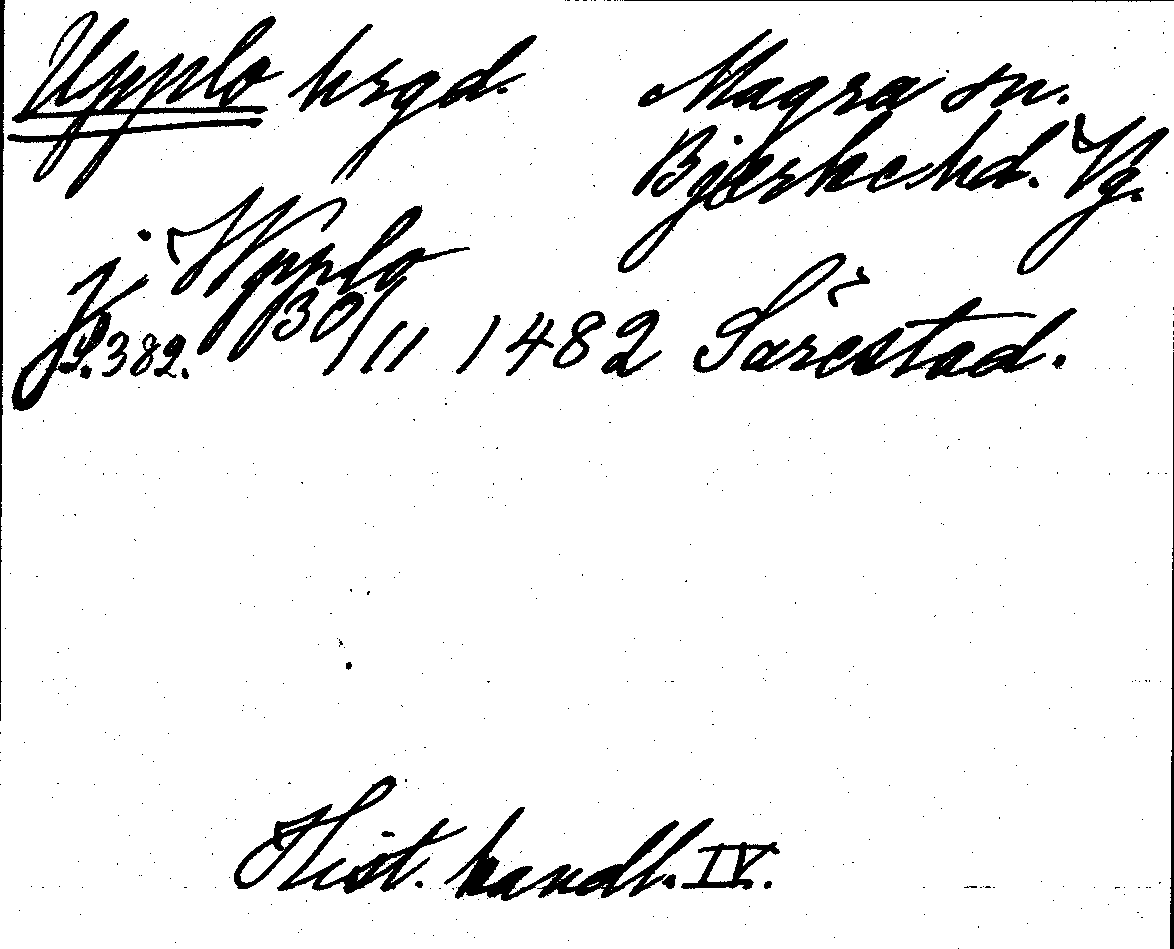 Upplo hrgd. Magra sn.
Bjerke hd. Vg.
j. Wpplo
S. 382. 30/11 1482 Sǎrestad.
Hist. handl. IV.